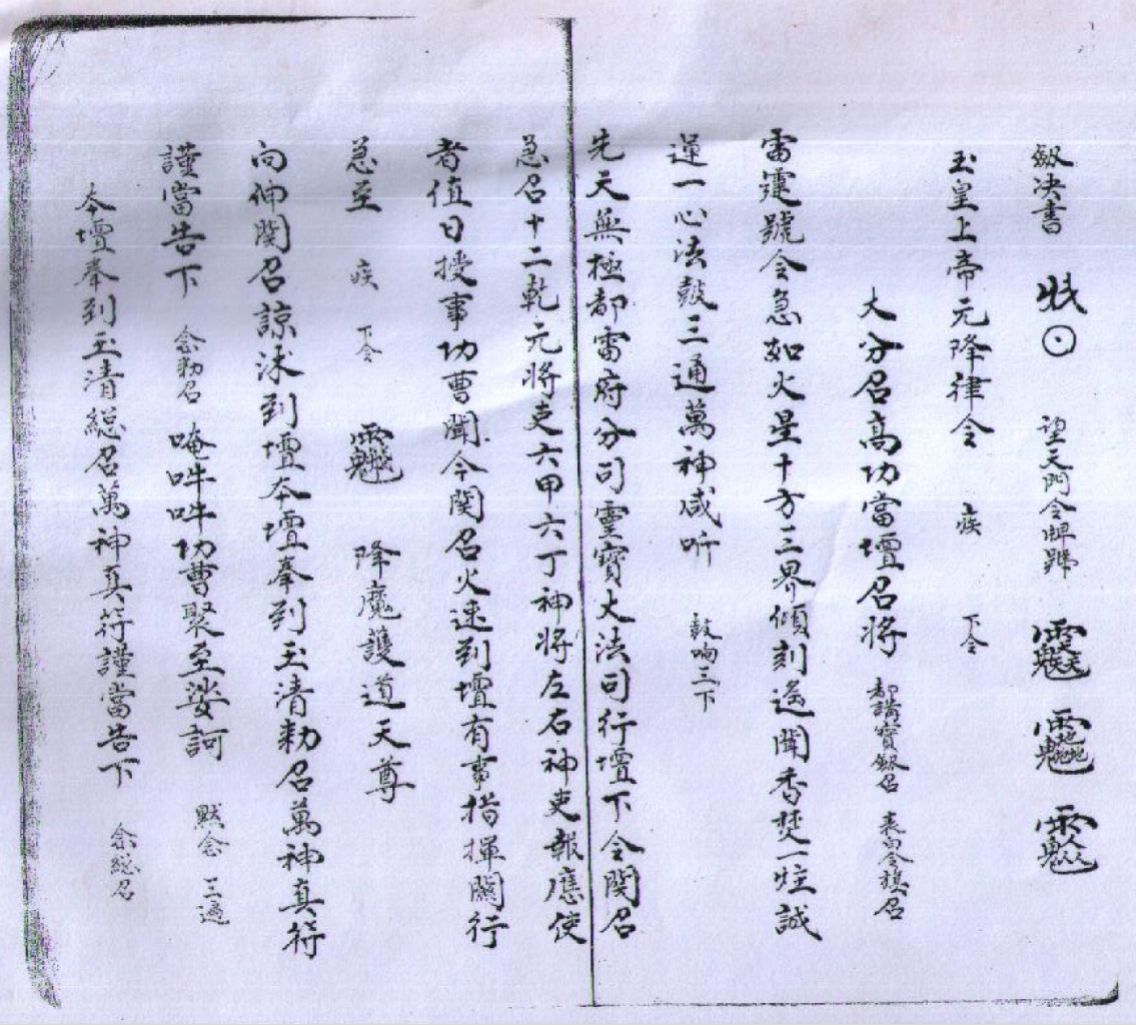 劔決書 ⊙ 望天門令牌
玉皇上帝元降律令 疾 下令
大分召高功當壇召將 都講寳劔召 表白令旗召
雷霆號令急如火星十方三界傾刻遥聞香焚一炷誠
運一心法鼓三通萬神咸听 鼓响三下
先天無極都雷府分司靈寳大法司行壇下令関召
急召十二乾元將吏六甲六丁神將左右神吏報應使
者值日授事功曹聞令関召火速到壇有事指揮關行
急至 疾 下令 降魔護道天尊
向伸関召諒沐到壇本壇奉到玉清勅召萬神真符
謹當告下 念勅召 唵吽吽功曹聚至娑訶 默念三遍
本壇奉到玉清総召萬神真符謹當告下 念総召